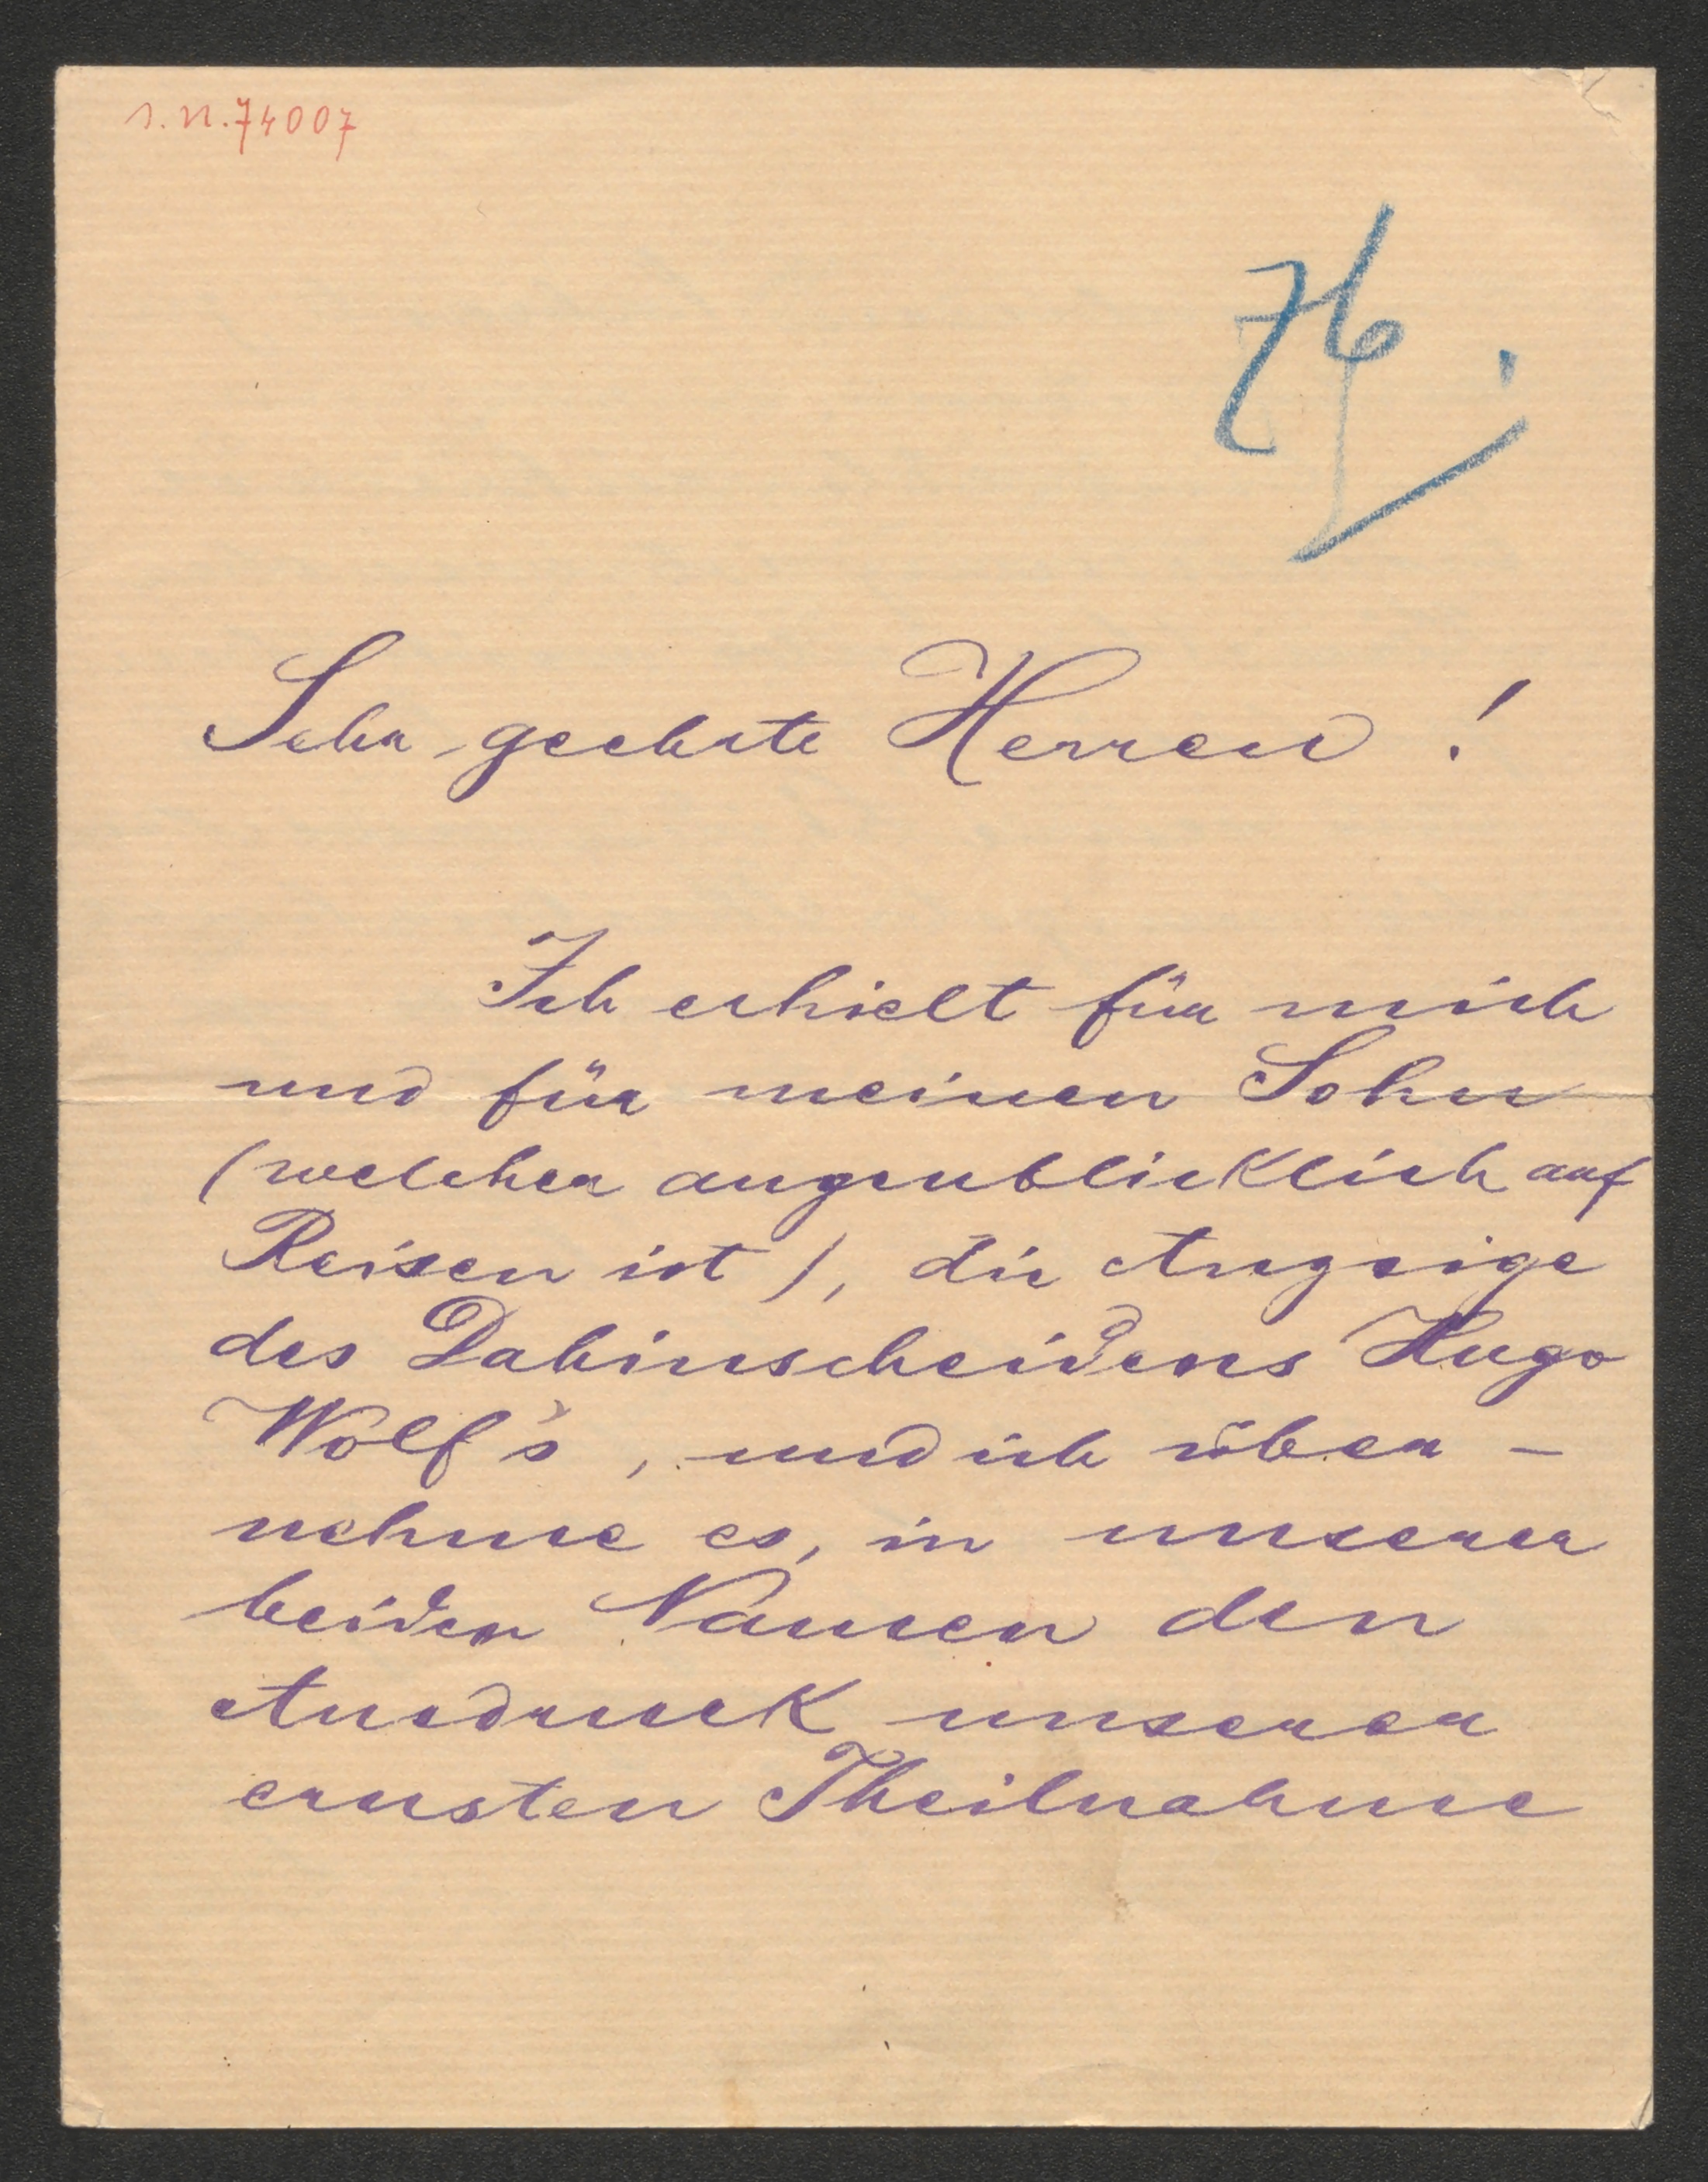 I. N. 74007
76
Sehr geehrte Herren !
Ich erhielt für mich
und für meinen Sohn
(welcher augenblicklich auf
Reisen ist), die Anzeige
des Dahinscheidens Hugo
Wolf's, und ich über-
nehme es, in unserer
beider Namen den
Ausdruck unserer
ernsten Theilnahme